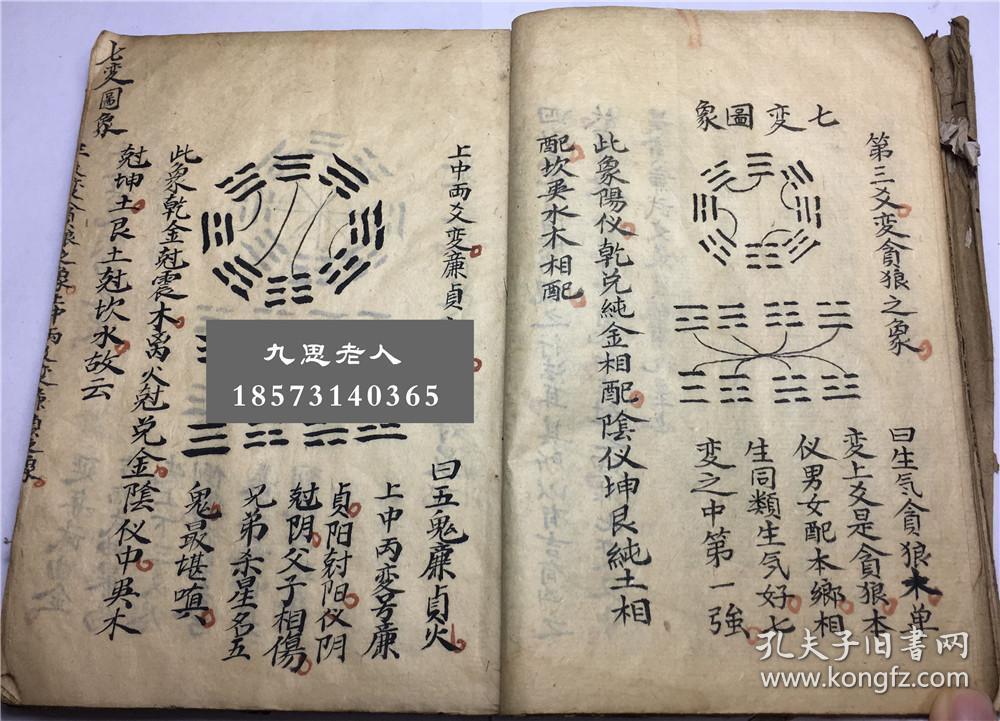 七变圖象
第三爻变貪狼之象
曰生气貪狼木单
变上爻是貪狼本
仪男女配本鄉相
生同類生气好七
变之中第一強
此象陽仪乾兑純金相配陰仪坤艮純土相
配坎巽水木相配
上中両爻变廉貞
曰五鬼廉貞火
上中丙变号廉
貞阳尅阳仪阴
尅阴父子相傷
兄弟杀星名五
鬼最堪嗔
此象乾金尅震木离火尅兑金陰仪中巽木
尅坤土艮土尅坎水故云
七变圖象
九思老人
18573140365
孔夫子旧书网
www.kongfz.com